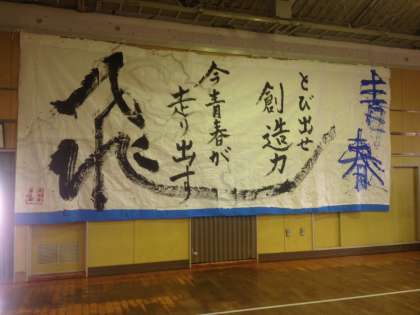 青春
とび出せ
創造力
今青春が
走り出す
飛